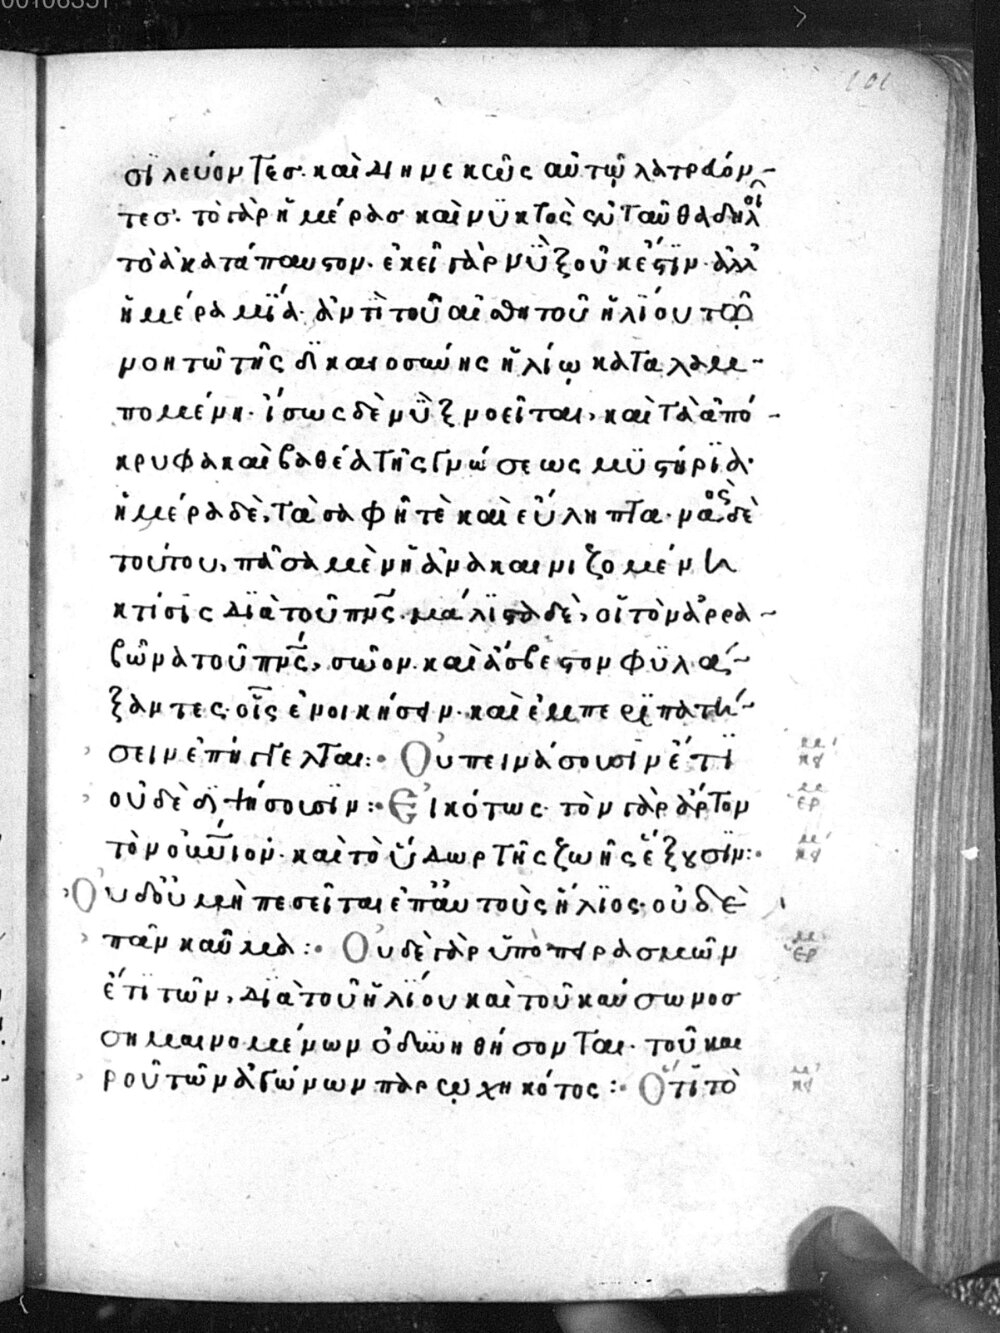 00106351
101
σϊλευόντες· καὶ διηνεκῶς αὐτῷ λατρεύον-
τες· τὸ γὰρ ἡμέρας καὶ νϋκτὸς ἐνταῦθα δηλοῖ
τὸ ἀκατάπαυστον· ἐκεῖ γὰρ νὺξ οὐκ ἔστϊν· ἀλλ'
ἡμέρα μϊά· ἀντὶ τοῦ αἰσθητοῦ ἡλϊου τῷ
νοητῶ τῆς δϊκαιοσύνης ἡλίῳ καταλαμ-
πομένη· ἴσως δὲ νὺξ νοεῖται, καὶ τὰ ἀπό-
κρυφα καὶ βαθέα τῆς γνώσεως μϋστήρϊα·
ἡμέρα δὲ, τὰ σαφῆ τὲ καὶ εὔληπτα· ναὸς δὲ
τούτου, πᾶσα μὲν ἡ ἀνακαινιζομένη
κτίσϊς δϊὰ τοῦ πνς· μάλϊστα δὲ, οἱ τὸν ἀρρα-
βῶνα τοῦ πνς, σῶον καὶ ἄσβεστον φϋλά-
ξαντες· οἷς ἐνοικήσειν· καὶ ἐμπερϊπατή-
σειν ἐπήγγελται:· Οὐ πεινάσουσϊν ἔτϊ
οὐδὲ δϊψήσουσϊν:· Εἰκότως· τὸν γὰρ ἄρτον
τὸν οὐνιον· καὶ τὸ ὕδωρ τῆς ζωῆς ἕξουσϊν:·
Οὐδ' οὐ μὴ πεσεῖται ἐπ' αὐτοὺς ἥλϊος· οὐδὲ
πᾶν καῦμα:· Οὐδὲ γὰρ ὑπὸ πειρασμῶν
ἔτϊ τῶν, δϊὰ τοῦ ἡλϊου καὶ τοῦ καύσωνος
σημαινομένων ὀδυνηθήσονται· τοῦ και
ροῦ τῶν ἀγώνων παρῳχηκότος:· Ὅτϊ τὸ
κει
ερ
κει
ερ
κει